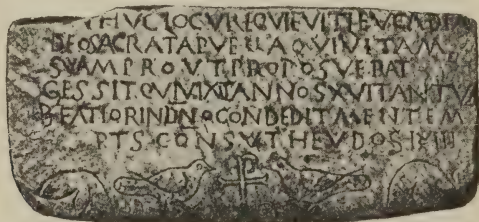 HVC IOCV REQVIEVIT LEVCADIA
DEO SACRATA PVELLA QVI VITAM
SVAM PROVT PROPOSVERAT
GESSIT QVI VIXIT ANNOS XVI TANTVM
BEATIOR IN DNO CONDEDIT MENTEM
PTS CONSV THEVDOSI XIII